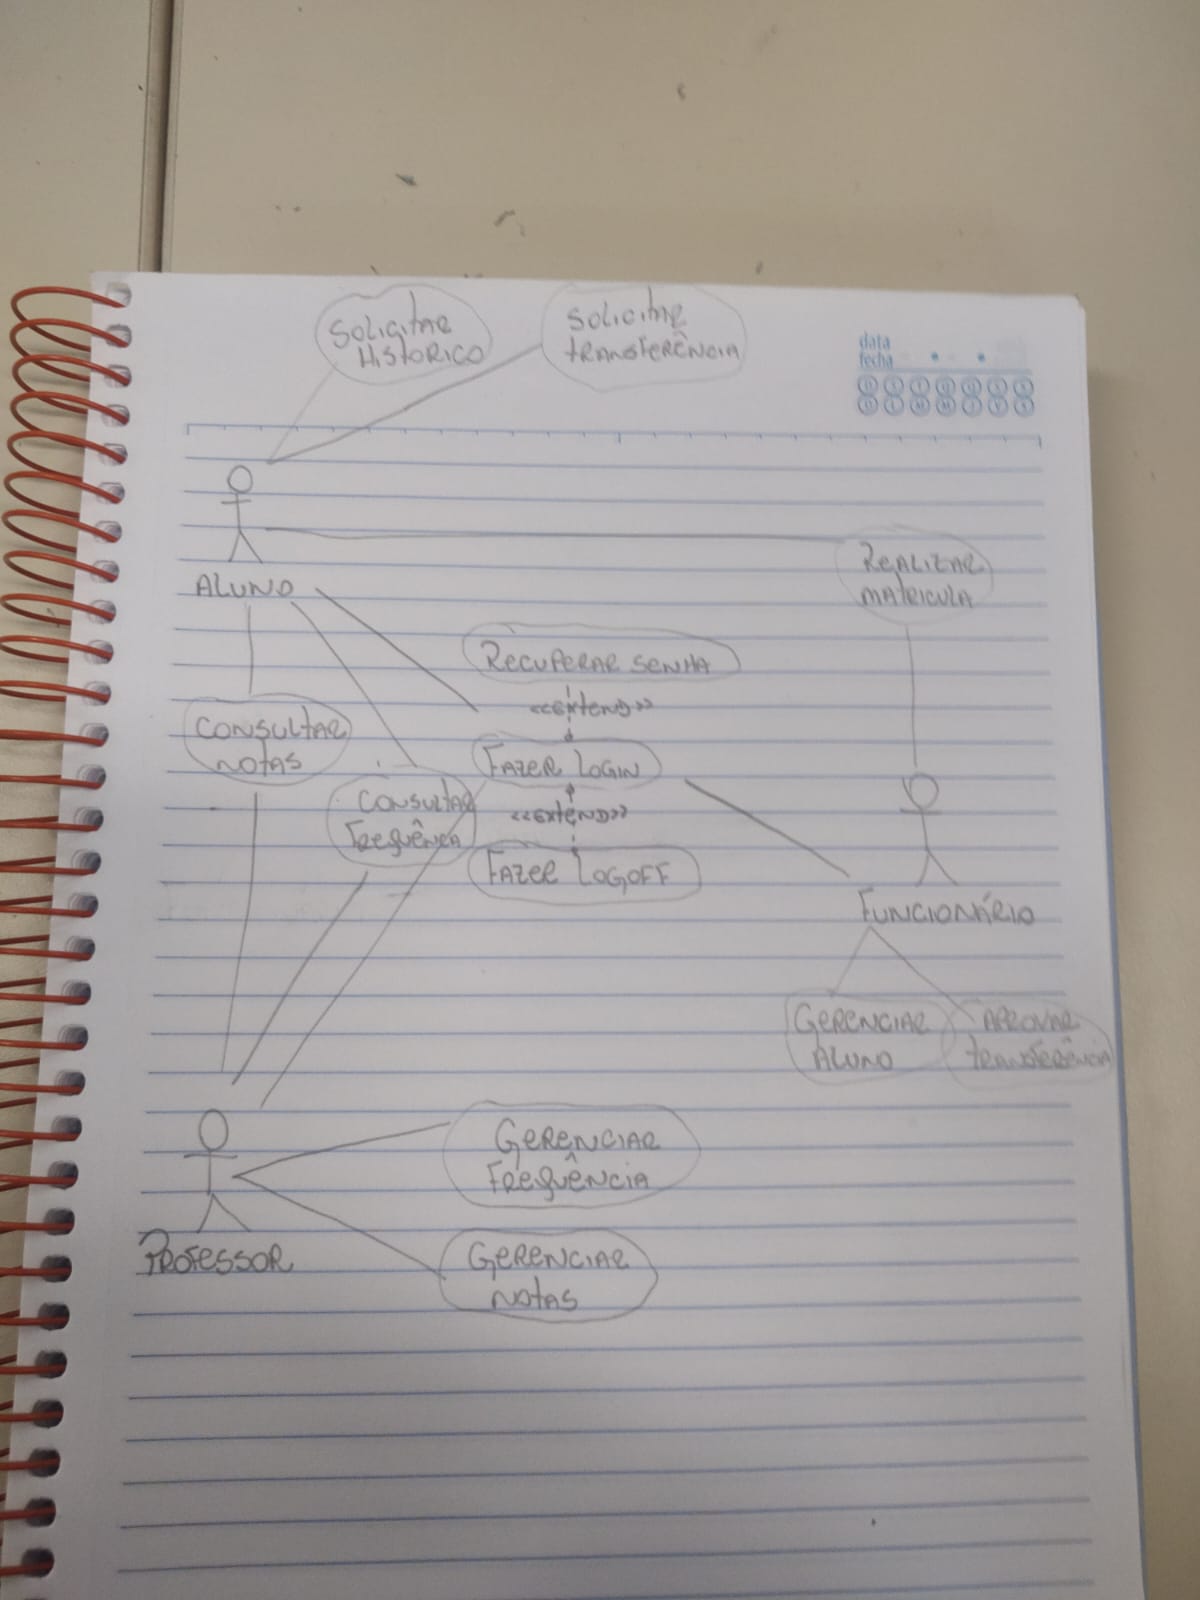 SOLICITAR
HISTORICO
SOLICITAR
TRANSFERÊNCIA
data
fecha
ALUNO
REALIZAR
MATRICULA
RECUPERAR SENHA
<<EXTEND>>
CONSULTAR
NOTAS
FAZER LOGIN
CONSULTAR
FREQUÊNCIA
<<EXTEND>>
FAZER LOGOFF
FUNCIONÁRIO
GERENCIAR
ALUNO
APROVAR
TRANSFERÊNCIA
GERENCIAR
FREQUÊNCIA
PROFESSOR
GERENCIAR
NOTAS